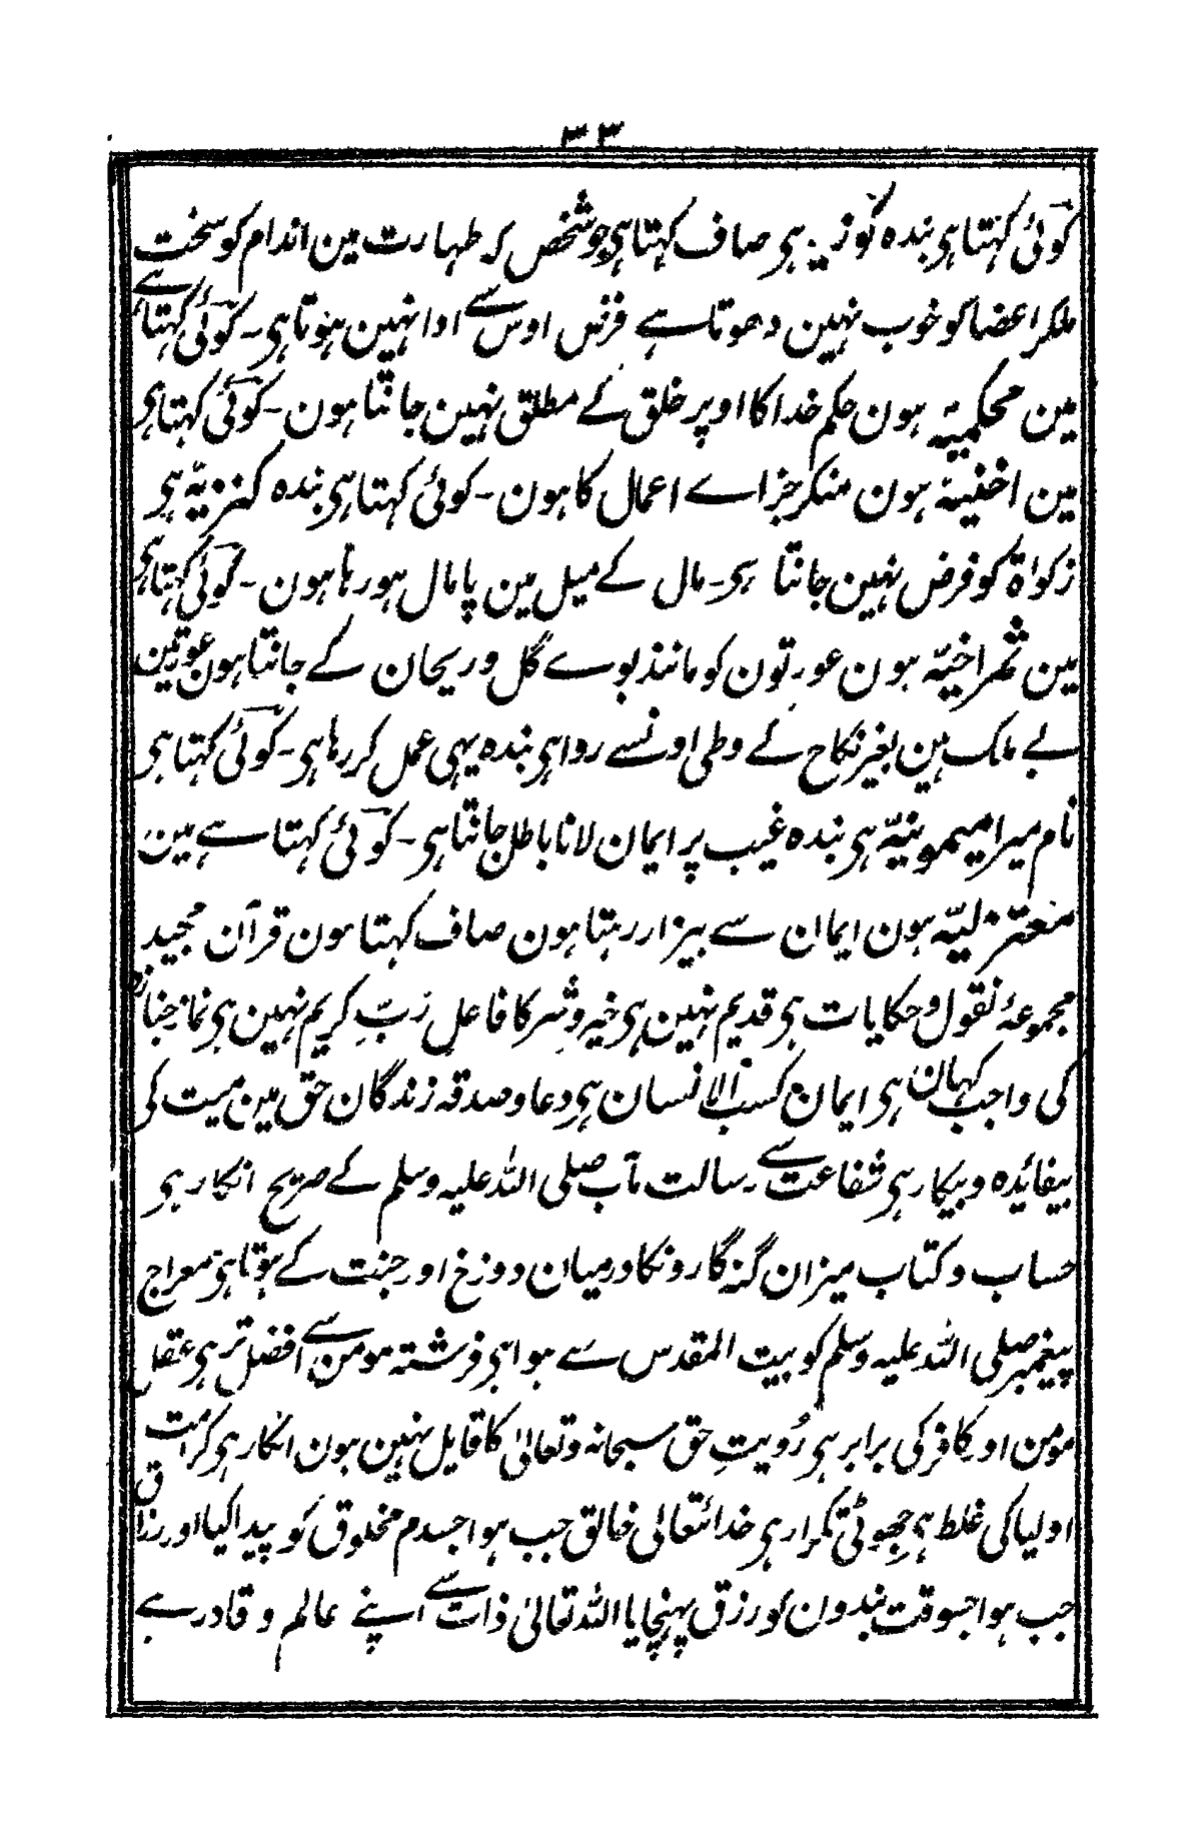 ۳۳
کوئی کہتا ہی بندہ کوزیہ ہی صاف کہتا ہی جو شخص کہ طہارت مین اندام کو سخت
ملکر اعضا کو خوب نہین دھوتا ہے فرض اوس سے ادا نہین ہوتا ہی۔ کوئی کہتا ہے
مین محکمیہ ہون حکم خدا کا اوپر خلق کے مطلق نہین جانتا ہون۔ کوئی کہتا ہی
مین اخنسیہ ہون منکر جزاے اعمال کا ہون۔ کوئی کہتا ہی بندہ کنزیہ ہی
زکواۃ کو فرض نہین جانتا ہی۔ مال کے میل مین پامال ہو رہا ہون۔ کوئی کہتا ہی
مین ثمراخیّہ ہون عورتون کو مانند بوے گل و ریحان کے جانتا ہون عورتین
بے ملک ہین بغیر نکاح کے وطی اونسے روا ہی بندہ یہی عمل کر رہا ہی۔ کوئی کہتا ہی
نام میرا میمونیّہ ہی بندہ غیب پر ایمان لانا باطل جانتا ہی۔ کوئی کہتا ہے مین
معتزلیّہ ہون ایمان سے بیزار رہتا ہون صاف کہتا ہون قرآن مجید
مجموعۂ نقول و حکایات ہی قدیم نہین ہی خیر و شر کا فاعل ربِّ کریم نہین ہی نماز جنازہ
کی واجب کہان ہی ایمان کسب الانسان ہی دعا و صدقہ زندگان حق مین میت کی
بیفائدہ و بیکار ہی شفاعت سے رسالت مآب صلی اللہ علیہ وسلم کے صریح انکار ہی
حساب و کتاب میزان گنہگارونکا درمیان دوزخ اور جنت کے ہوتا ہی معراج
پیغمبر صلی اللہ علیہ وسلم کو بیت المقدس سے ہوا ہی فرشتہ مومن سے افضل تر ہی عقل
مومن اور کافر کی برابر ہی رُویتِ حق سبحانہ وتعالیٰ کا قایل نہین ہون انکار ہی کرامت
اولیا کی غلط ہی جھوٹی تکرار ہی خدائتعالی خالق جب ہوا جسدم مخلوق کو پیدا کیا اور رزاق
جب ہوا جسوقت بندون کو رزق پہنچایا اللہ تعالیٰ ذات سے اپنے عالم و قادر ہے